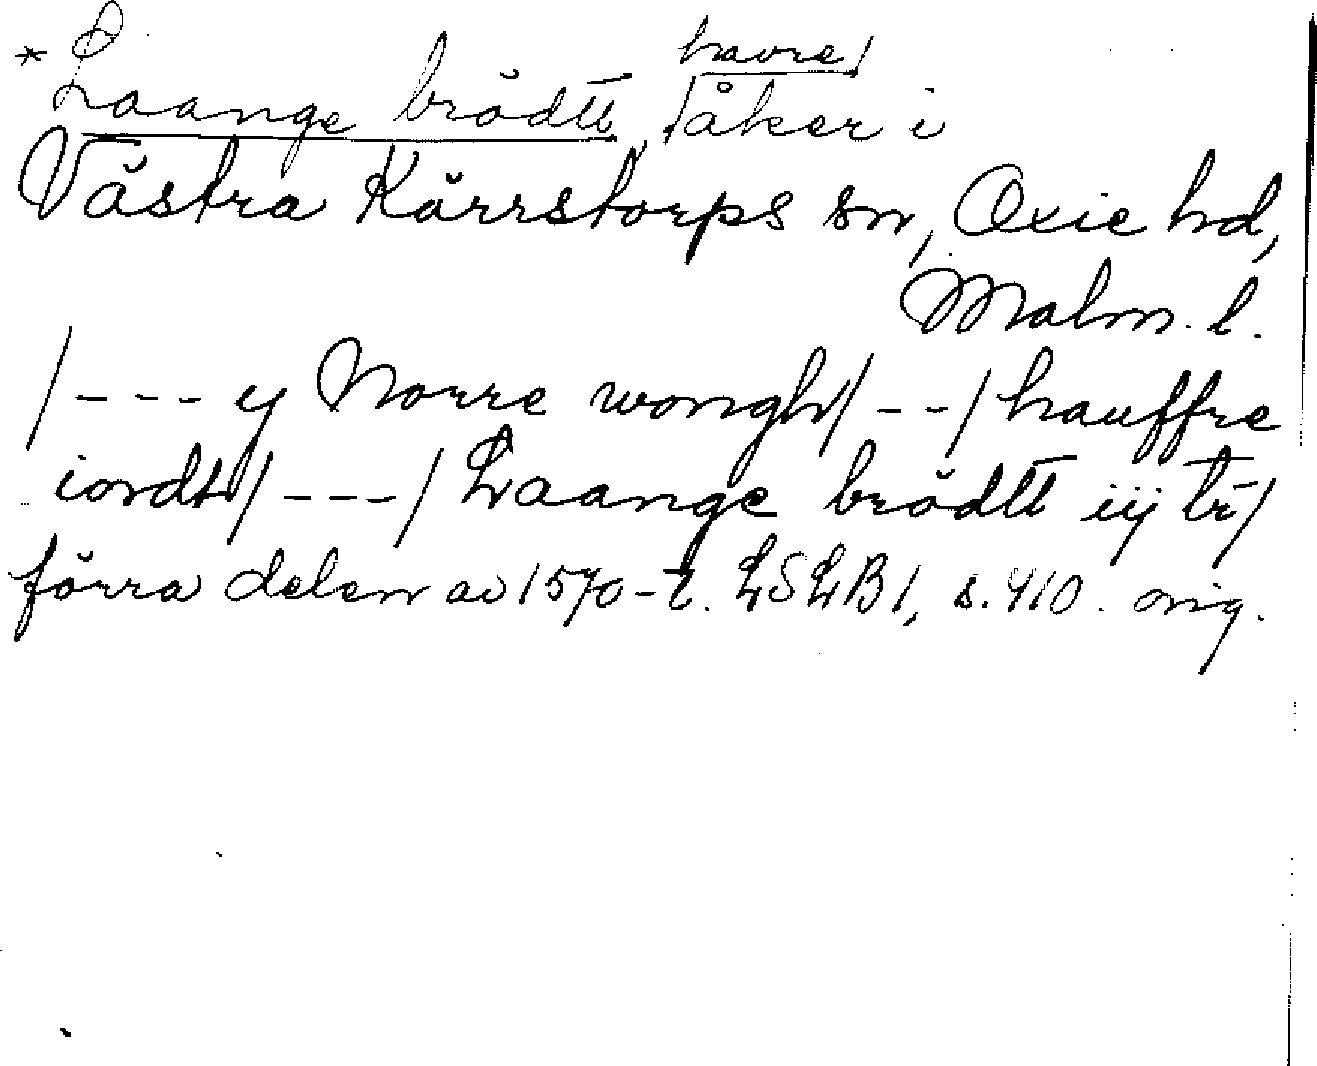 * Laange brödtt, /havre/åker i
Västra Kärrstorps sn, Oxie hd,
Malm. l.
/--- y Norre wongh/--/hauffre
iordt/---/Laange brödtt iij tr/
förra delen av 1570-t. LSLB 1, s. 410. orig.